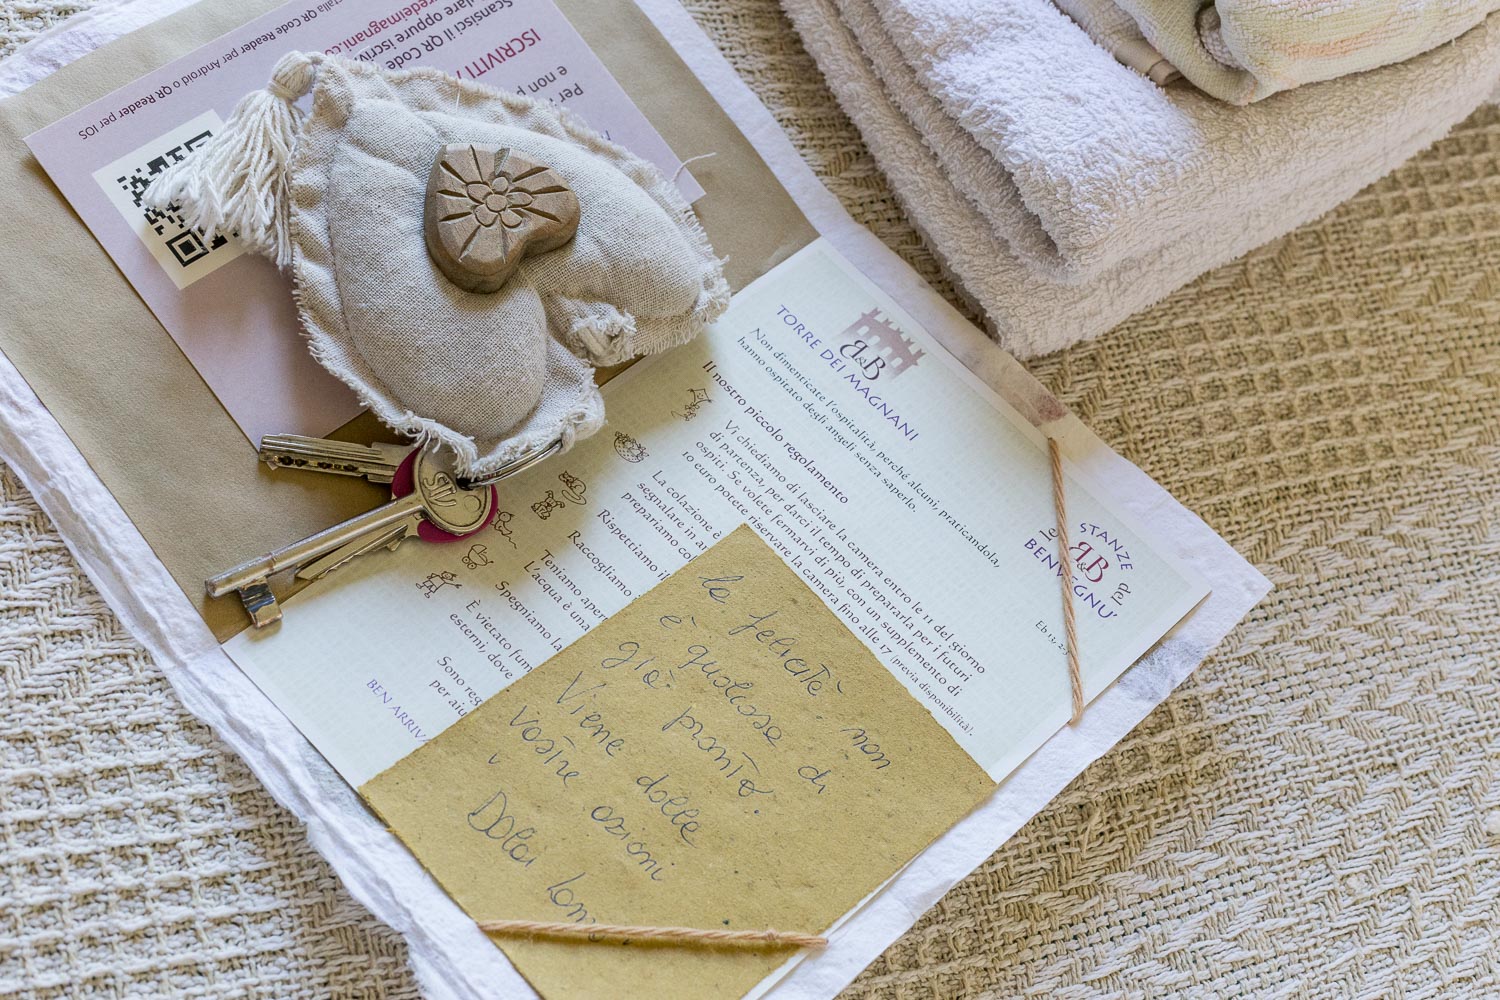 nstalla QR Code Reader per Android o QR Reader per iOS
Scansisci il QR Code
lare oppure iscriv
rredeimagnani.co
ISCRIVITI
e non p
Per
TORRE DEI MAGNANI
B&B
Non dimenticate l'ospitalità, perché alcuni, praticandola,
hanno ospitato degli angeli senza saperlo.
Eb 13, 2
le STANZE del
B&B
BENVEGNU'
Il nostro piccolo regolamento
Vi chiediamo di lasciare la camera entro le 11 del giorno
di partenza, per darci il tempo di prepararla per i futuri
ospiti. Se volete fermarvi di più, con un supplemento di
10 euro potete riservare la camera fino alle 17 (previa disponibilità).
La colazione è
segnalare in an
prepariamo co
Rispettiamo il
Raccogliamo
Teniamo aper
L'acqua è una
Spegniamo la
È vietato fum
esterni, dove
Sono reg
per aiu
BEN ARRIV
STP
la felicità non
è qualcosa di
già pronto.
Viene dalle
vostre azioni
Dalai Lam